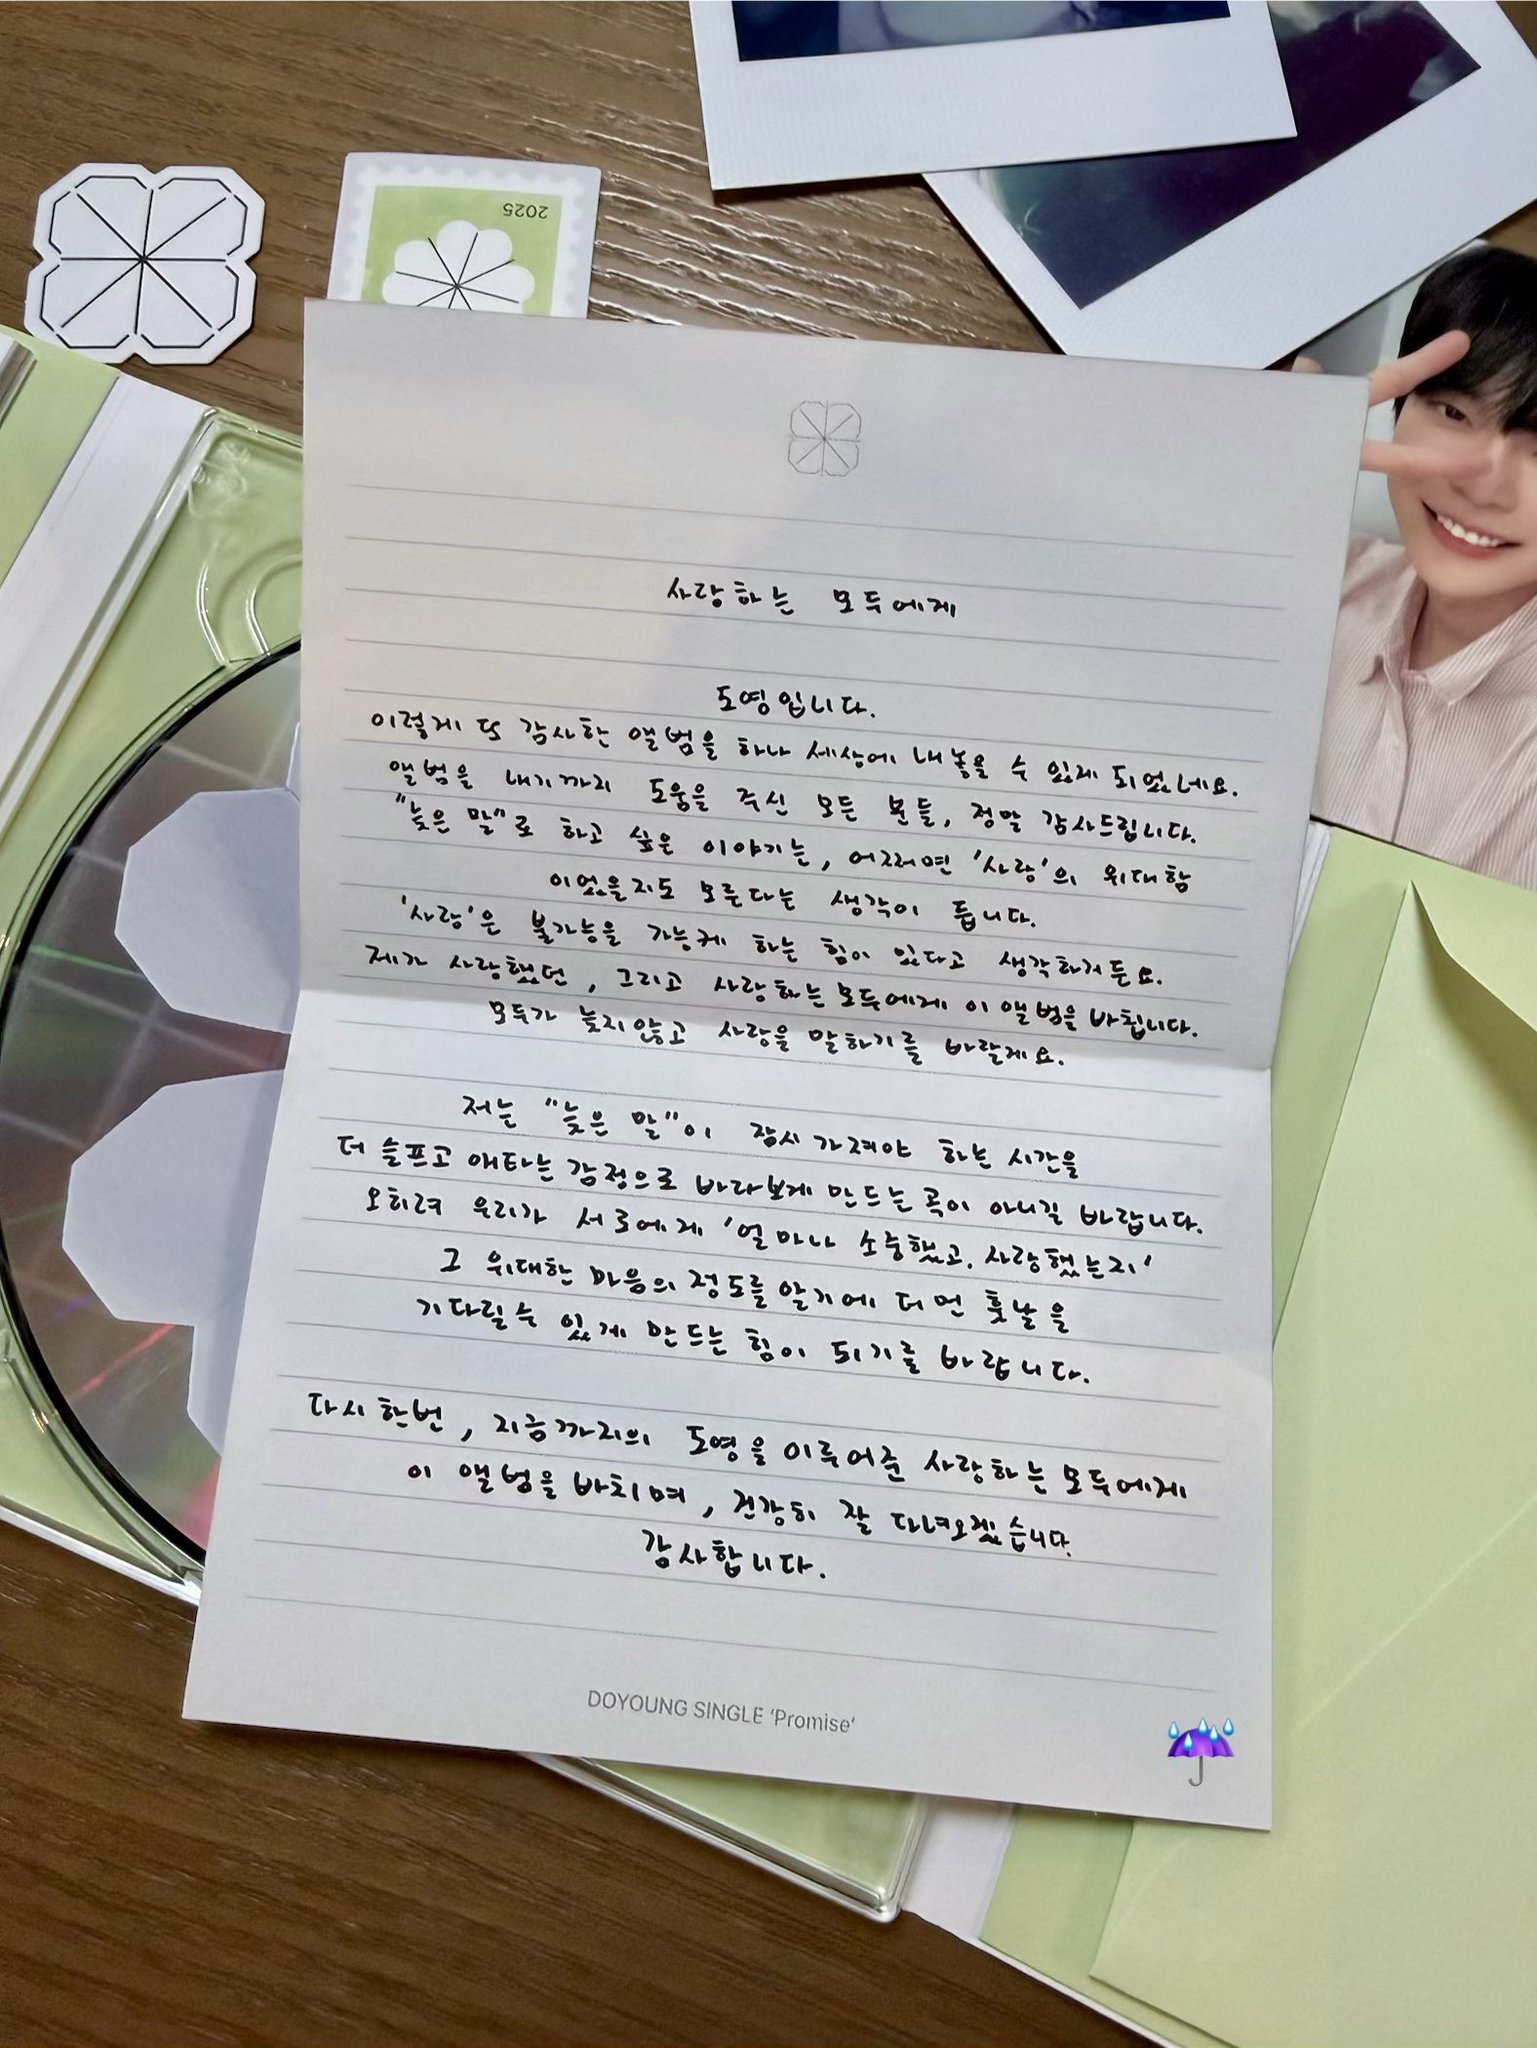 2025
사랑하는 모두에게
도영입니다.
이렇게 또 감사한 앨범을 하나 세상에 내놓을 수 있게 되었네요.
앨범을 내기까지 도움을 주신 모든 분들, 정말 감사드립니다.
"늦은 말"로 하고 싶은 이야기는, 어쩌면 '사랑'의 위대함
이었을지도 모른다는 생각이 듭니다.
'사랑'은 불가능을 가능케 하는 힘이 있다고 생각하거든요.
제가 사랑했던, 그리고 사랑하는 모두에게 이 앨범을 바칩니다.
모두가 늦지않고 사랑을 말하기를 바랄게요.
저는 "늦은 말"이 잠시 가져야 하는 시간을
더 슬프고 애타는 감정으로 바라보게 만드는 곡이 아니길 바랍니다.
오히려 우리가 서로에게 '얼마나 소중했고, 사랑했는지'
그 위대한 마음의 정도를 알기에 더 먼 훗날을
기다릴 수 있게 만드는 힘이 되기를 바랍니다.
다시 한번, 지금까지의 도영을 이루어준 사랑하는 모두에게
이 앨범을 바치며, 건강히 잘 다녀오겠습니다.
감사합니다.
DOYOUNG SINGLE 'Promise'